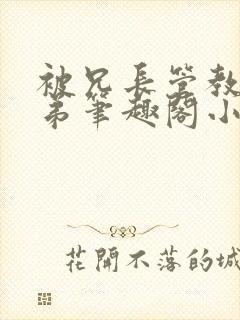 被兄长管教
弟笔趣阁小
花開不落的城